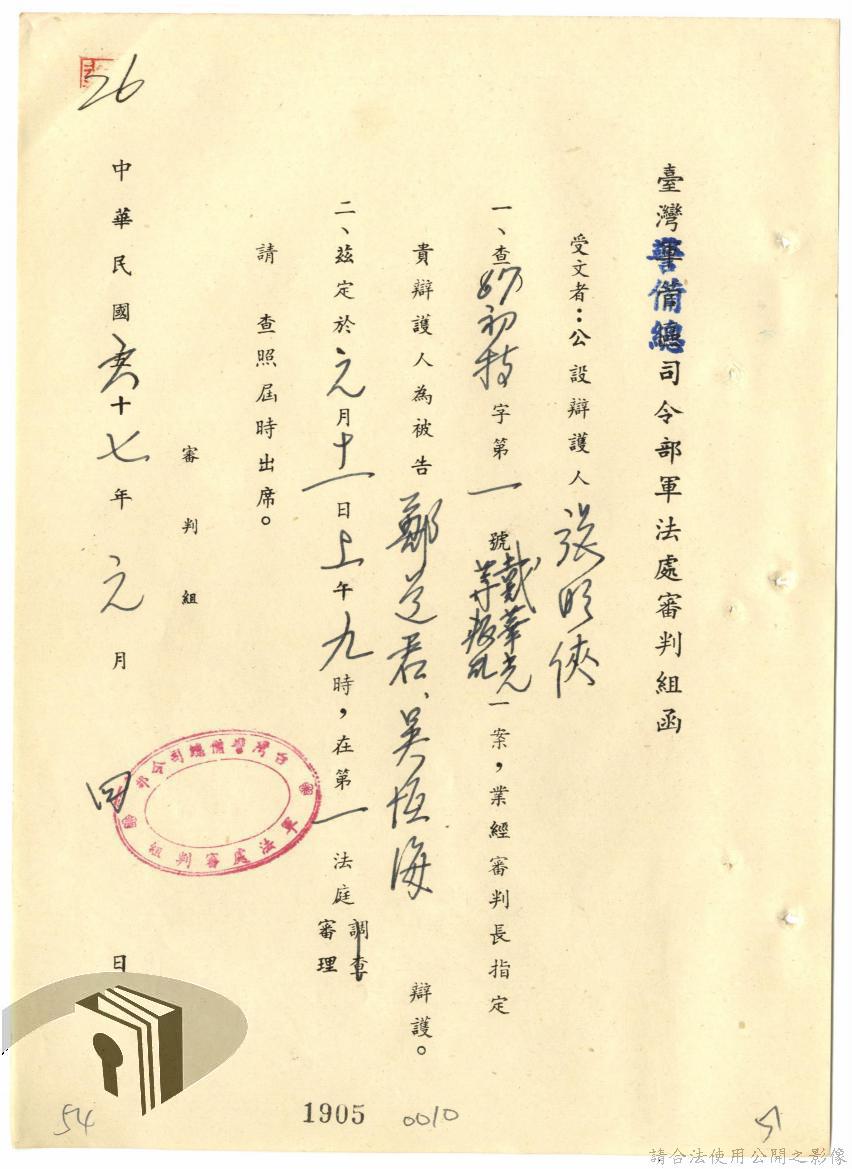 臺灣警備總司令部軍法處審判組函
受文者：公設辯護人張明俠
一、查67初特字第一號戴華光等叛亂一案，業經審判長指定
貴辯護人為被告鄭道君、吳恆海辯護。
二、茲定於元月十一日上午九時，在第一法庭調查審理
請查照屆時出席。
審判組
中華民國六十七年元月四日
台灣警備總司令部
軍法處審判組
26
54
1905
0010
51
請合法使用公開之影像